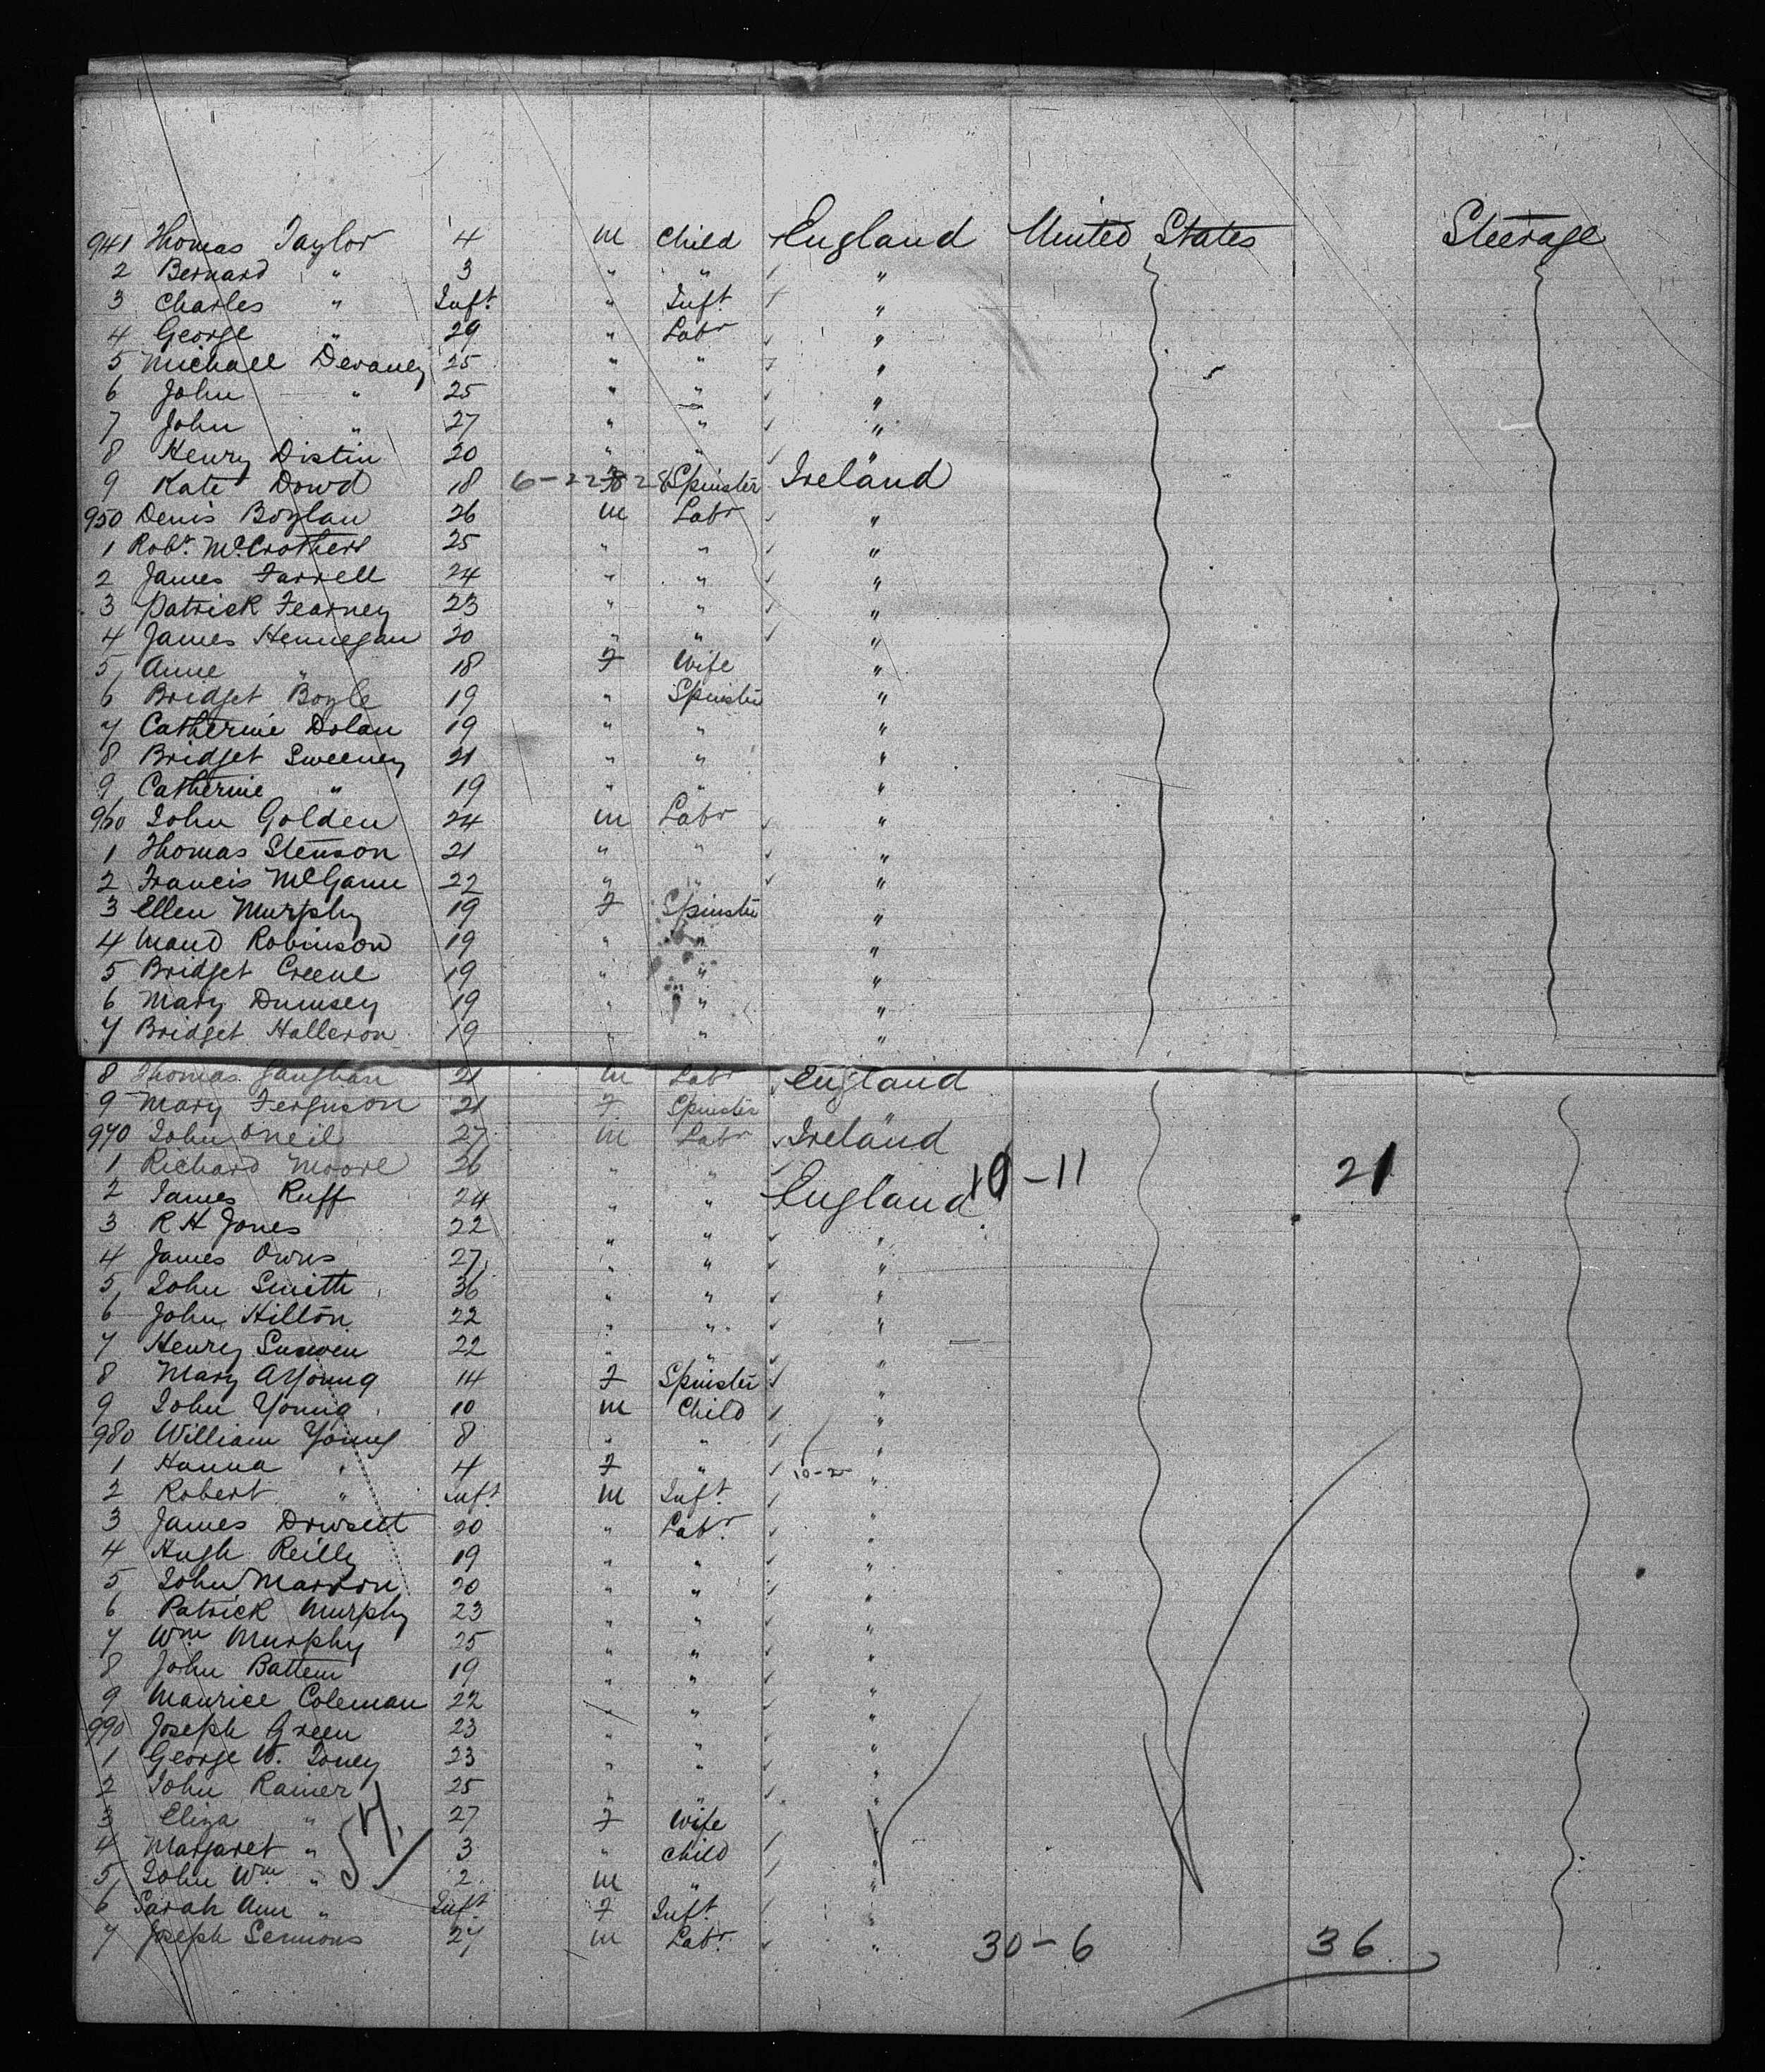 941 Thomas Taylor 4 m Child England United States Steerage
2 Bernard " 3 " " "
3 Charles " Inft. " Inft. "
4 George " 29 " Labr "
5 Michael Devaney 25 " " "
6 John " 25 " " "
7 John " 27 " " "
8 Henry Distin 20 " "
9 Kate Dowd 18 6-22 Spinster Ireland
950 Denis Boylan 26 m Labr "
1 Robt. McCrothers 25 " " "
2 James Farrell 24 " " "
3 Patrick Fearney 23 " " "
4 James Hennegan 20 " " "
5 Anne " 18 F Wife "
6 Bridget Boyle 19 " Spinster "
7 Catherine Dolan 19 " " "
8 Bridget Sweeney 21 " " "
9 Catherine " 19 " " "
960 John Golden 24 m Labr "
1 Thomas Stenson 21 " " "
2 Francis McGann 22 " " "
3 Ellen Murphy 19 F Spinster "
4 Maud Robinson 19 " " "
5 Bridget Greene 19 " " "
6 Mary Dumsey 19 " " "
7 Bridget Halleron 19 " " "
8 Thomas Gaughan 21 m Labr England
9 Mary Ferguson 21 F Spinster "
970 John Oneil 27 m Labr Ireland
1 Richard Moore 26 " " 10-11 21
2 James Ruff 24 " " England
3 R H Jones 22 " " "
4 James Owns 27 " " "
5 John Smith 36 " " "
6 John Hilton 22 " " "
7 Henry 22 " " "
8 Mary A Young 14 F Spinster "
9 John Young 10 m Child "
980 William Young 8 " " "
1 Hanna " 4 F " 10-2 "
2 Robert " Inft. m Inft.
3 James 20 " Labr. "
4 Hugh Reilly 19 " " "
5 John Marron 20 " " "
6 Patrick Murphy 23 " " "
7 Wm Murphy 25 " " "
8 John Battem 19 " " "
9 Maurice Coleman 22 " " "
990 Joseph Green 23 " " "
1 George W. Toney 23 " " "
2 John Rainer 25 " " "
3 Eliza " 27 F Wife "
4 Margaret " 3 " Child "
5 John Wm " 2 m " "
6 Sarah Ann " Inft F Inft. "
7 Joseph Semmons 27 m Labr. " 30-6 36